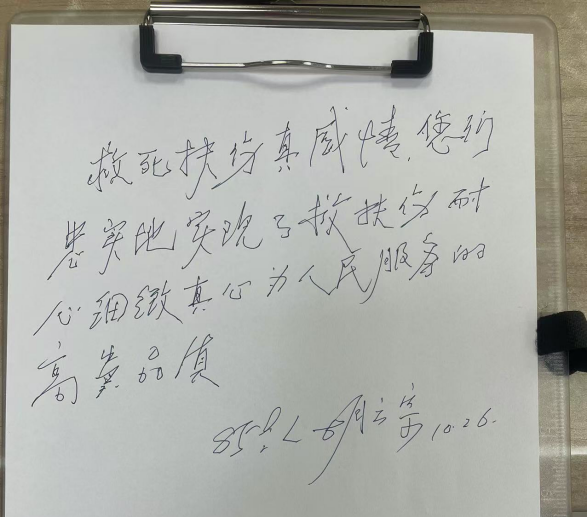 救死扶伤真感情,您们
忠实地实现了救扶伤耐
心细致真心为人民服务的
高贵品质
85岁 10.26.